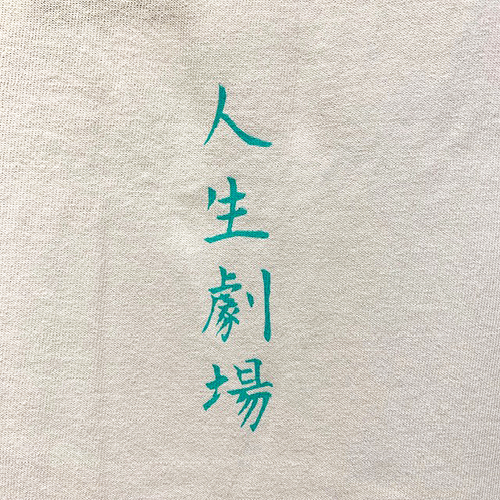 人生劇場